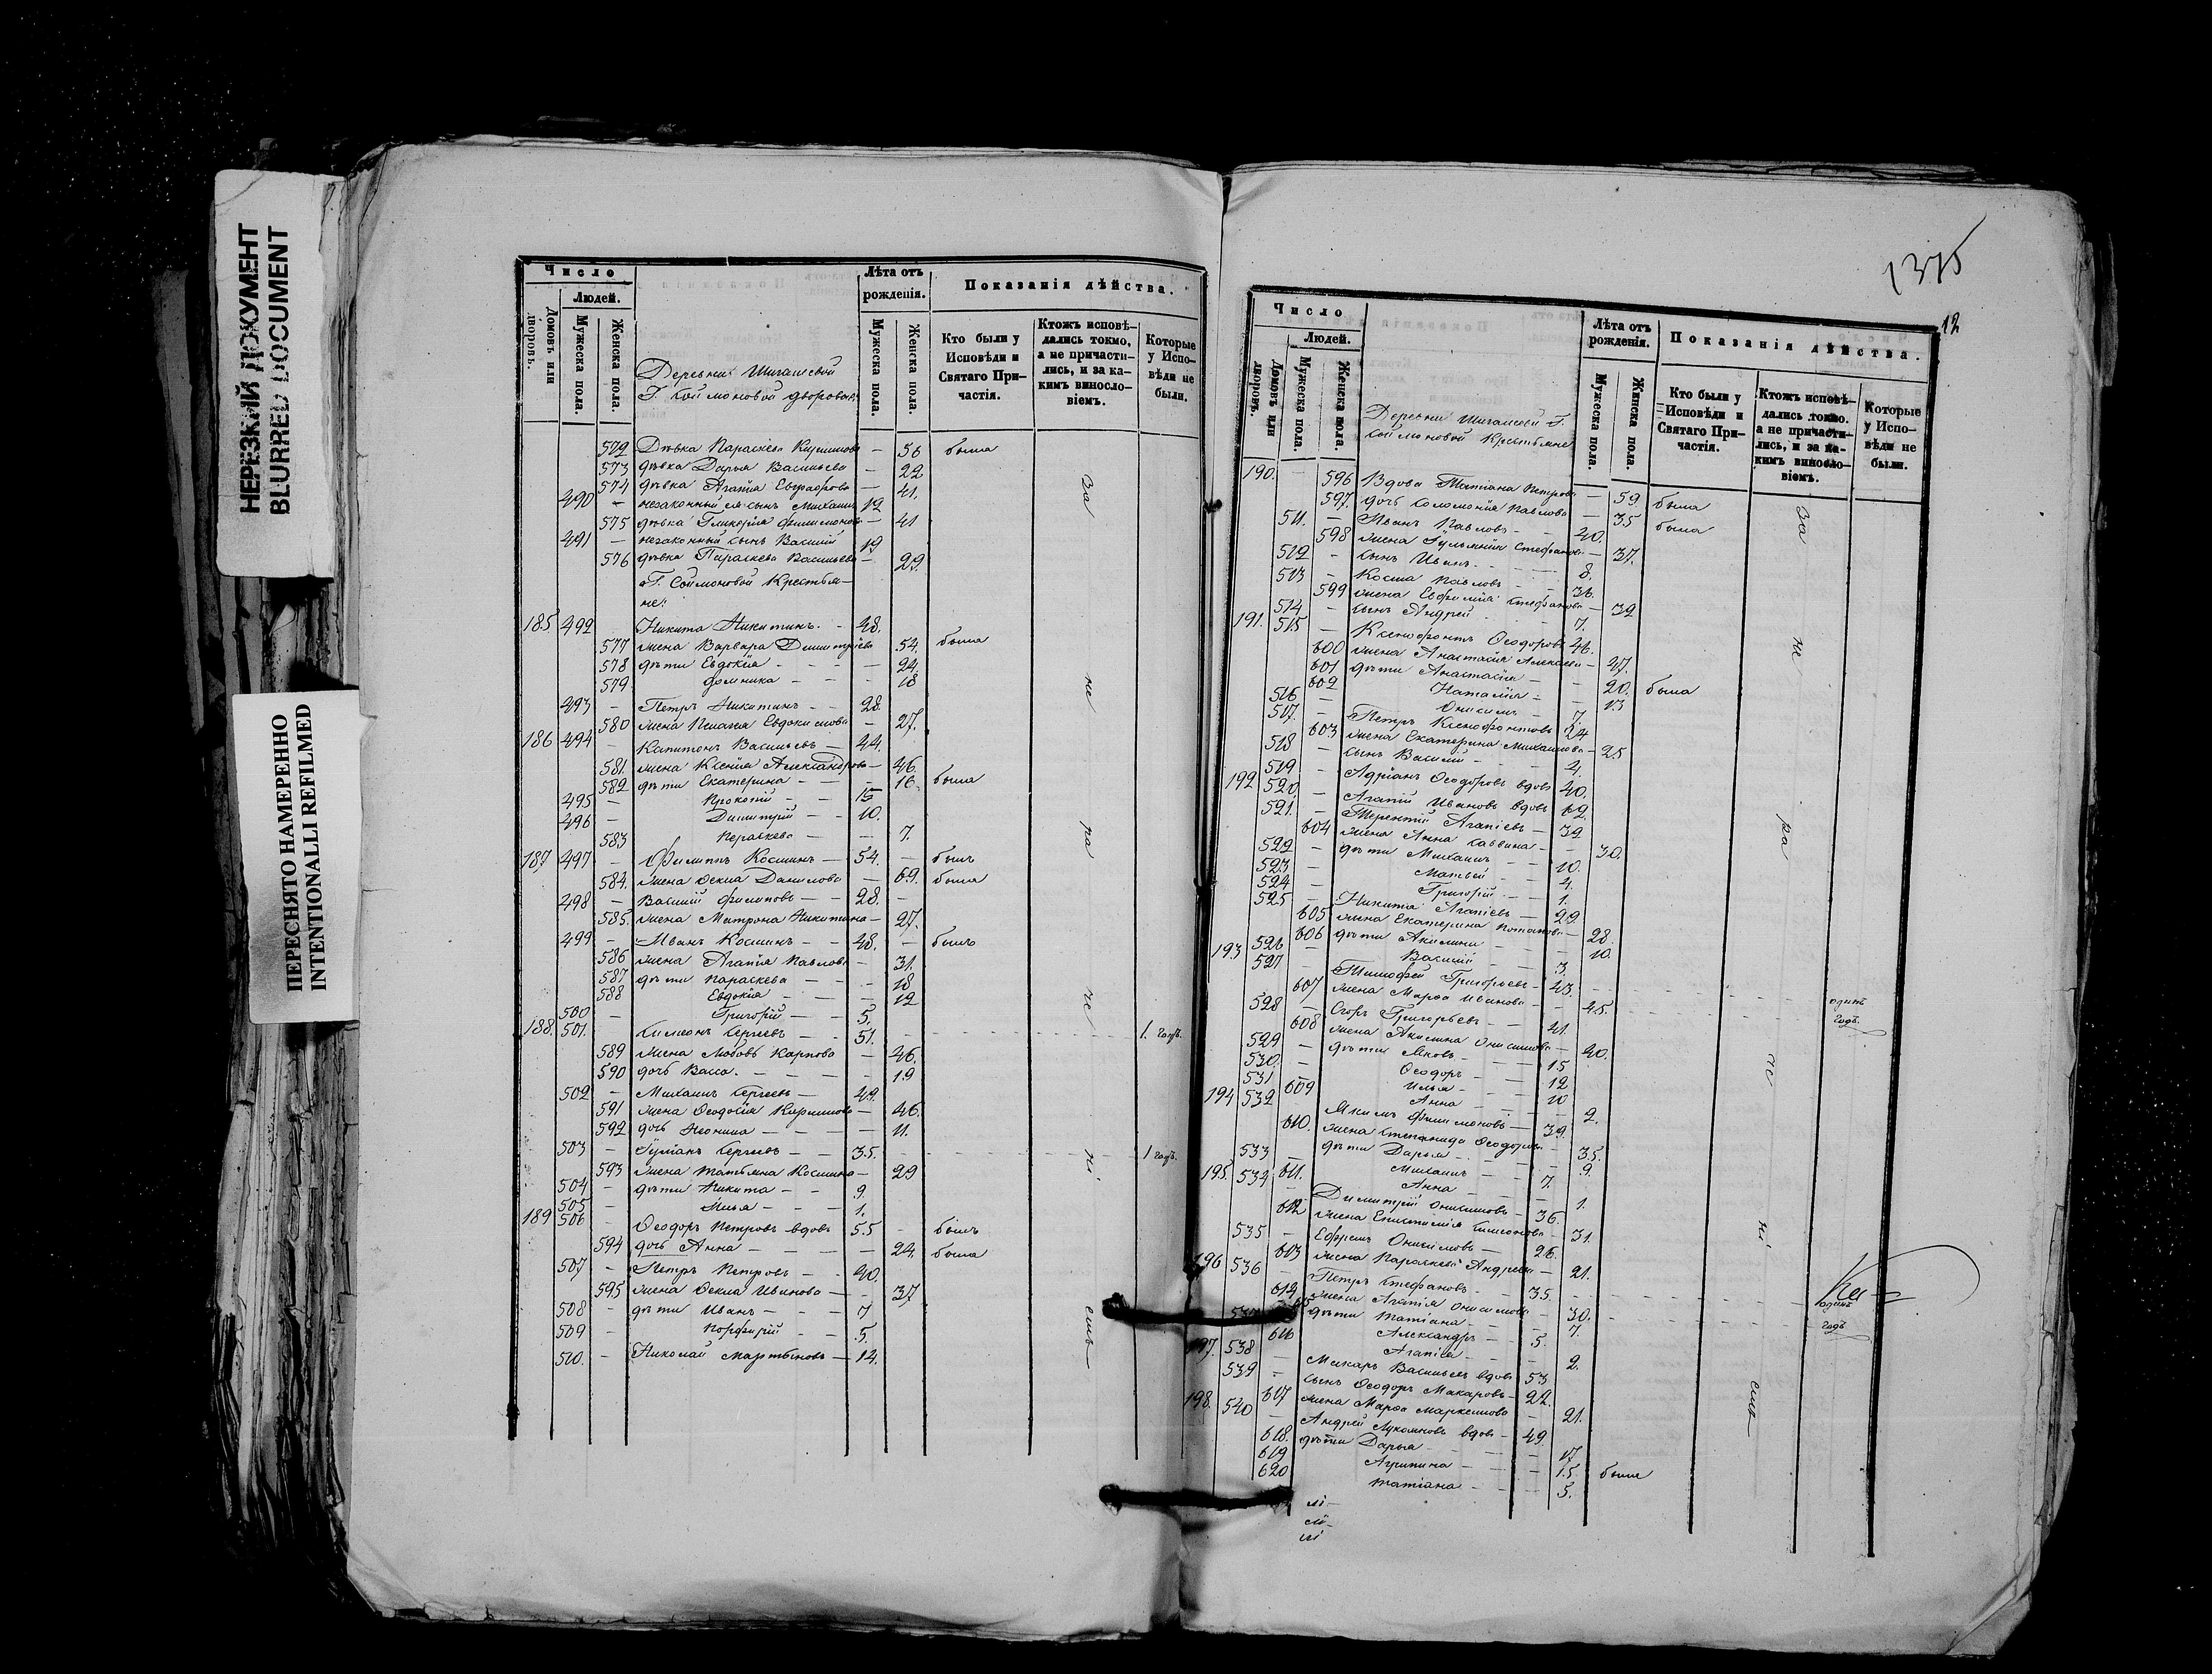 НЕРЕЗКИЙ ДОКУМЕНТ
BLURRED DOCUMENT
ПЕРЕСНЯТО НАМЕРЕННО
INTENTIONALLI REFILMED
Число
Людей.
Домовъ или дворовъ.
Мужеска пола.
Женска пола.
Лѣта отъ рожденія.
Мужеска пола.
Женска пола.
Показанія дѣйства.
Кто были у Исповѣди и Святаго Причастія.
Ктожъ исповѣдались токмо, а не причастились, и за какимъ винословіемъ.
Которые у Исповѣди не были.
Деревни
Г. Соймоновой дворовыя
572 Дѣвка Параскева — 56 была
573 дѣвка Дарья Васильева — 22
574 дѣвка Агапія Евграфова — 41.
490 — незаконный ея сынъ Михаилъ 12
575 дѣвка Гликерія Филимонова — 41
491 — незаконный сынъ Василій 19
576 дѣвка Параскева Васильева — 29.
Г. Соймоновой Крестьяне:
185 492 — Никита Никитинъ — 48.
577 жена Варвара Димитріева 54. была
578 дѣти Евдокія — 24.
579 Домника — 18
493 — Петръ Никитинъ — 28.
580 жена Пелагія Евдокимова — 27.
186 494 — Капитонъ Васильевъ — 44.
581. жена Ксенія Александрова — 46.
582 дѣти Екатерина — 16. была
495 — Прокопій — 15
496 — Димитрій — 10.
583 Параскева — 7.
187 497 — Филиппъ Косминъ — 54. — былъ
584. жена Ѳекла Данилова — 69. была
498 — Василій Филиповъ — 28. —
585. жена Матрона Никитина — 27.
499 — Иванъ Косминъ — 48. — былъ
586 жена Агапія Павлова — 31.
587 дѣти Параскева — 18
588 Евдокія — 12
500 — Григорій — 5.
188. 501. Симеонъ Сергѣевъ — 51. 1. годъ.
589 жена Любовь Карпова — 46.
590 дочь Васса. — 19
502 — Михаилъ Сергѣевъ — 49.
591 жена Ѳеодосія — 46.
592 дочь Неонила — 11.
503 — Іуліанъ Сергѣевъ — 35. 1 годъ.
593 жена Татьяна Космина — 29
504 — дѣти Никита — 9.
505 — Илья — 1.
189 506 — Ѳеодоръ Петровъ вдовъ 55 — былъ
594 дочь Анна — 24. была
507 — Петръ Петровъ — 40.
595 жена Ѳекла Иванова — 37
508 — дѣти Иванъ — 7
509 — Порфирій — 5.
510. — Николай Мартыновъ — 14.
За не ра че ні емъ
1315
12
Число
Людей.
Домовъ или дворовъ.
Мужеска пола.
Женска пола.
Лѣта отъ рожденія.
Мужеска пола.
Женска пола.
Показанія дѣйства.
Кто были у Исповѣди и Святаго Причастія.
Ктожъ исповѣдались токмо, а не причастились, и за какимъ винословіемъ.
Которые у Исповѣди не были.
Деревни Г.
Соймоновой Крестьяне
190. — 596 Вдова Татіана Петрова — 59. была
597. дочь Соломонія Павлова — 35. была
511. — Иванъ Павловъ — 40.
598 жена Іуліанія Стефанова — 37.
512 — сынъ Иванъ — 8.
513 — Косма Павловъ — 36.
599 жена Евфимія Стефанова — 32
514 — сынъ Андрей — 7.
191. 515 — Ксенофонтъ Ѳеодоровъ 46.
600 жена Анастасія Алексеева — 47.
601 дѣти Анастасія — 20. была
602 Наталія — 13
516 — Онисимъ — 7.
517. — Петръ Ксенофонтовъ 24
603 жена Екатерина Михаилова — 25
518 — сынъ Василій — 4.
519 — Адріанъ Ѳеодоровъ вдовъ 40.
192 520 — Агапій Ивановъ вдовъ 62.
521. — Терентій Агапіевъ — 32
604 жена Анна Саввина — 30.
522 — дѣти Михаилъ — 10.
523 — Матвей — 4.
524 — Григорій — 1.
525 — Никита Агапіевъ — 29
605 жена Екатерина Потапова — 28.
606 дѣти Акилина — 10.
526 — Василій — 3.
193 527 — Тимофей Григорьевъ — 43. одинъ годъ.
607 жена Марѳа Иванова — 45.
528 — Егоръ Григорьевъ — 41.
608 жена Акилина Онисимова — 40.
529 — дѣти Яковъ — 15
530. — Ѳеодоръ — 12
531 — Илья — 10
609 Анна — 2.
194 532 Якимъ Филимоновъ — 39.
610. жена Степанида Ѳеодорова — 35.
дѣти Дарья — 9.
533 — Михаилъ — 7.
611. Анна — 1.
195. 534 Димитрій Онисимовъ — 36.
612 жена Епистимія Симеонова — 31.
535 — Ефремъ Онисимовъ — 26.
613 жена Параскева Андреева — 21.
196 536 — Петръ Стефановъ — 35. одинъ годъ
614 жена Агапія Онисимова — 30.
дѣти Татіана — 7.
537 Александръ — 5.
616 Агапія — 2.
197. 538 — Макаръ Васильевъ вдовъ 53
539 — сынъ Ѳеодоръ Макаровъ — 22.
617 жена Марѳа — 21.
198. 540 — Андрей вдовъ — 49.
618. дѣти Дарья — 17
619 Агрипина — 15. была
620 Татіана — 5.
За не ра че ні емъ